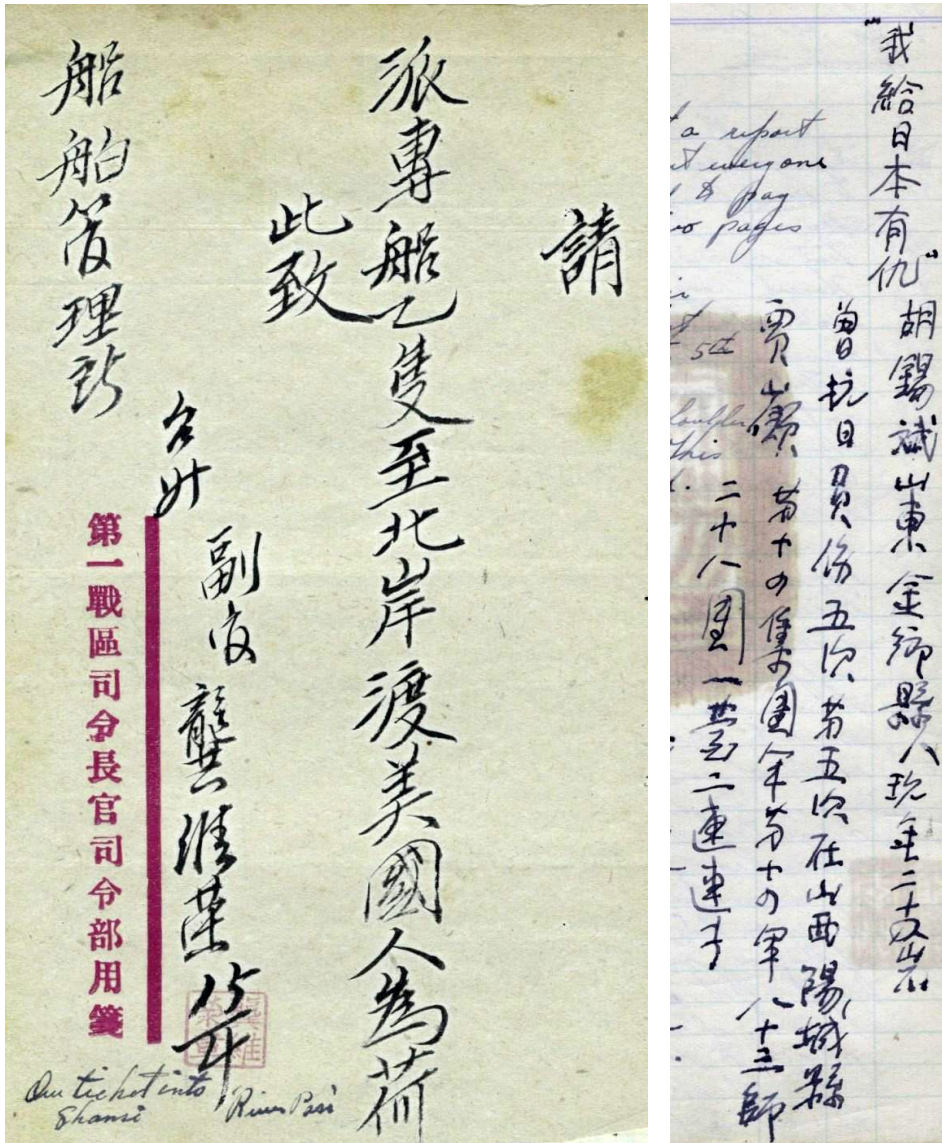 請
派專船乙隻至北岸渡美國人為荷
此致
船舶管理所
副官 龔維榮
第一戰區司令長官司令部用箋
Our ticket into
Shansi
River Pass
"我給日本有仇"
胡錫斌山東金鄉縣人現年二十 岩
曾抗日負伤五次第五次在山西陽城縣
賈山嶺 第十四集團军第十四軍八十三師
二十八團一营二連連子
a report
everyone
& pay
two pages
5th
this